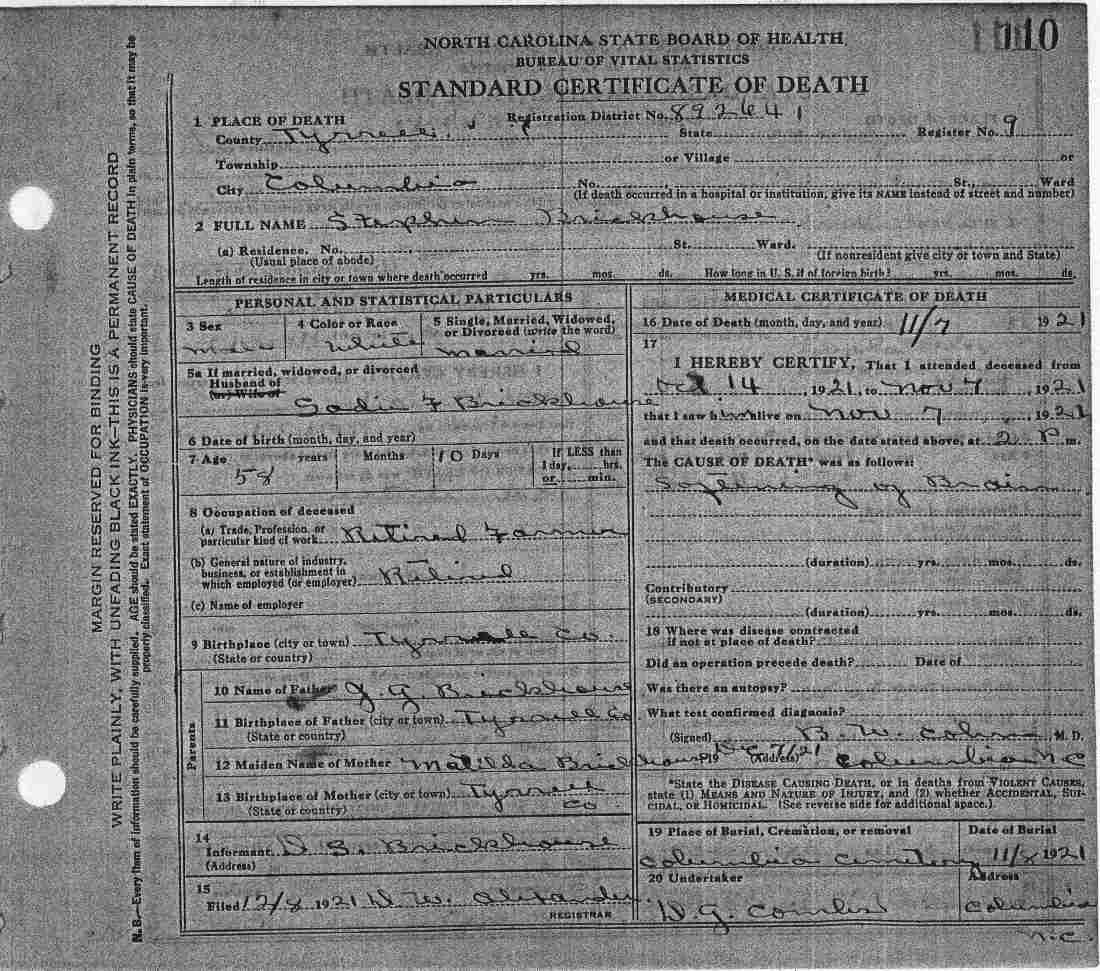 110
NORTH CAROLINA STATE BOARD OF HEALTH
BUREAU OF VITAL STATISTICS
STANDARD CERTIFICATE OF DEATH
1 PLACE OF DEATH Registration District No. 892641
County Tyrrell State Register No. 9
Township or Village or
City Columbia No. St., Ward
(If death occurred in a hospital or institution, give its NAME instead of street and number)
2 FULL NAME Stephen Brickhouse
(a) Residence. No. St. Ward.
(Usual place of abode) (If nonresident give city or town and State)
Length of residence in city or town where death occurred yrs. mos. ds. How long in U. S. if of foreign birth? yrs. mos. ds.
PERSONAL AND STATISTICAL PARTICULARS
3 Sex
Male
4 Color or Race
White
5 Single, Married, Widowed,
or Divorced (write the word)
Married
5a If married, widowed, or divorced
Husband of
(or) Wife of
Sadie F Brickhouse
6 Date of birth (month, day, and year)
7 Age years Months 10 Days If LESS than
1 day, hrs.
58 or min.
8 Occupation of deceased
(a) Trade, Profession, or
particular kind of work Retired Farmer
(b) General nature of industry,
business, or establishment in
which employed (or employer) Retired
(c) Name of employer
9 Birthplace (city or town) Tyrrell Co.
(State or country)
Parents
10 Name of Father J. G. Brickhouse
11 Birthplace of Father (city or town) Tyrrell Co
(State or country)
12 Maiden Name of Mother Matilda Brickhouse
13 Birthplace of Mother (city or town) Tyrrell
(State or country) Co.
14
Informant D S. Brickhouse
(Address)
15
Filed 12/8 1921 D. W. Alexander.
REGISTRAR
MEDICAL CERTIFICATE OF DEATH
16 Date of Death (month, day, and year) 11/7 1921
17
I HEREBY CERTIFY, That I attended deceased from
Oct 14, 1921, to Nov 7, 1921
that I saw him alive on Nov 7, 1921
and that death occurred, on the date stated above, at 2 P m.
The CAUSE OF DEATH* was as follows:
Softening of Brain
(duration) yrs. mos. ds.
Contributory
(SECONDARY)
(duration) yrs. mos. ds.
18 Where was disease contracted
if not at place of death?
Did an operation precede death? Date of
Was there an autopsy?
What test confirmed diagnosis?
(Signed) B. W. M. D.
19 21 (Address) Columbia N C
*State the DISEASE CAUSING DEATH, or in deaths from VIOLENT CAUSES,
state (1) MEANS AND NATURE OF INJURY, and (2) whether ACCIDENTAL, SUI-
CIDAL, OR HOMICIDAL. (See reverse side for additional space.)
19 Place of Burial, Cremation, or removal Date of Burial
Columbia Cemetery 11/8 1921
20 Undertaker Address
D. G. Combs Columbia
N.C.
MARGIN RESERVED FOR BINDING
WRITE PLAINLY, WITH UNFADING BLACK INK—THIS IS A PERMANENT RECORD
N. B.—Every item of information should be carefully supplied. AGE should be stated EXACTLY. PHYSICIANS should state CAUSE OF DEATH in plain terms, so that it may be
properly classified. Exact statement of OCCUPATION is very important.